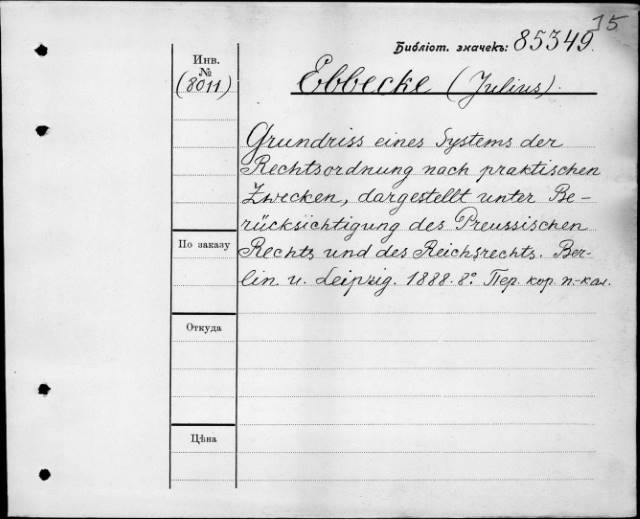 15
Библіот. значекъ: 85349.
Инв.
№
(8011)
Ebbecke (Julius).
Grundriss eines Systems der
Rechtsordnung nach praktischen
Zwecken, dargestellt unter Be-
rücksichtigung des Preussischen
Rechts und des Reichsrechts. Ber-
lin u. Leipzig. 1888. 8º. Пер. кор. п.-кал.
По заказу
Откуда
Цѣна